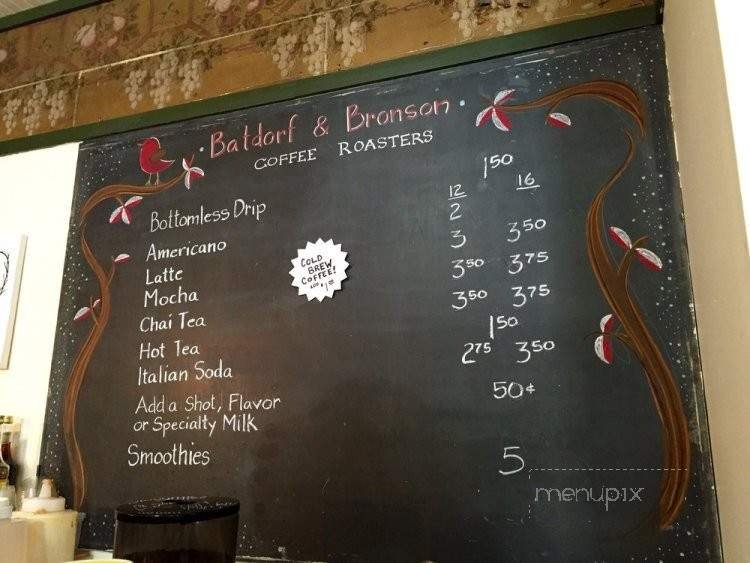 Batdorf & Bronson
COFFEE ROASTERS
Bottomless Drip 1 50
12 16
Americano 2
Latte 3 3 50
Mocha 3 50 3 75
Chai Tea 3 50 3 75
Hot Tea 1 50
Italian Soda 2 75 3 50
Add a Shot, Flavor 50¢
or Specialty Milk
Smoothies 5
COLD
BREW
COFFEE!
menupix